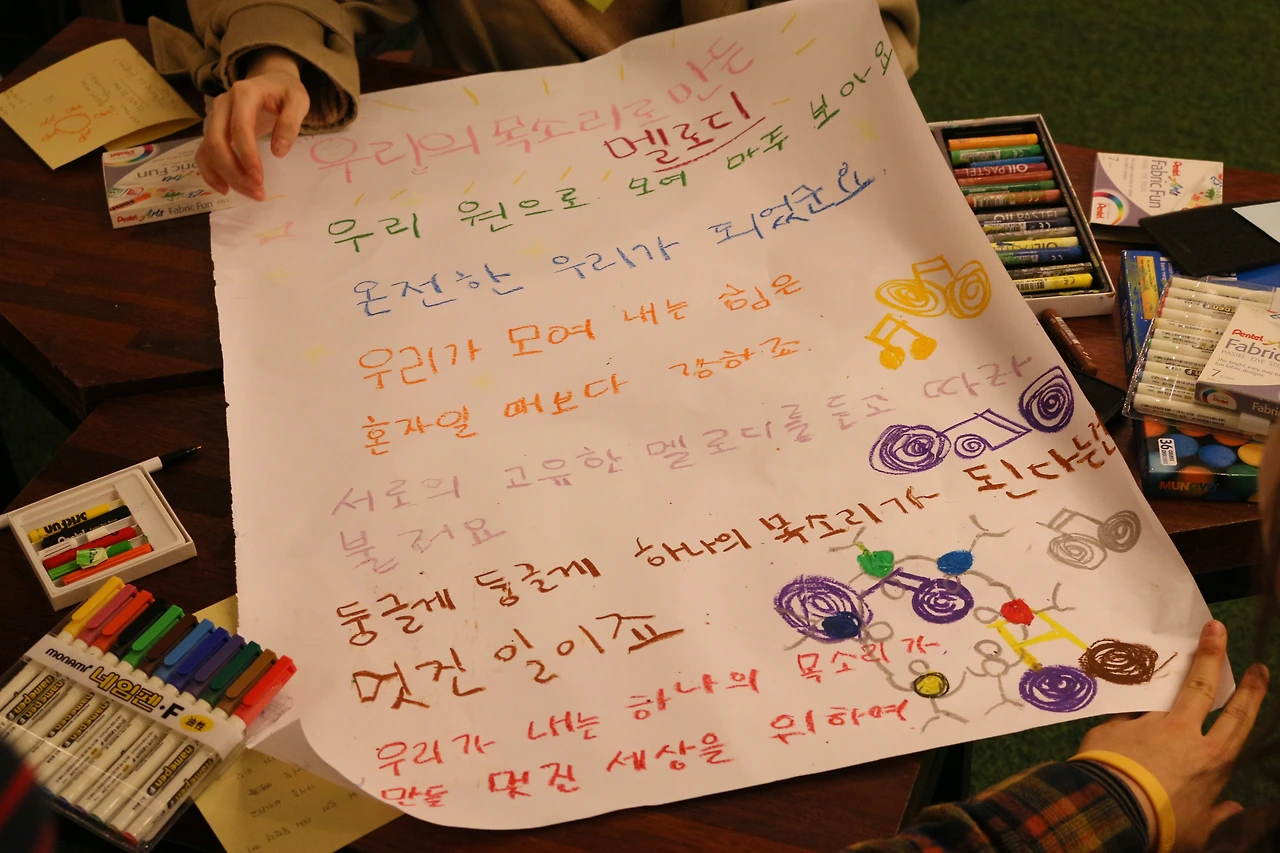 우리의 목소리로 만든
멜로디
우리 원으로 모여 마주 보아요
온전한 우리가 되었군요.
우리가 모여 내는 힘은
혼자일 때보다 강하죠.
서로의 고유한 멜로디를 듣고 따라
불러요
둥글게 둥글게 하나의 목소리가 된다는건
멋진 일이죠
우리가 내는 하나의 목소리가
만들 멋진 세상을 위하여
Pentel Arts Fabric Fun
OIL PASTEL
7
Pentel Arts Fabric Fun
Pentel
Fabric
PASTEL DYE STICKS
7
36
MUNGYO
monami 네임펜·F